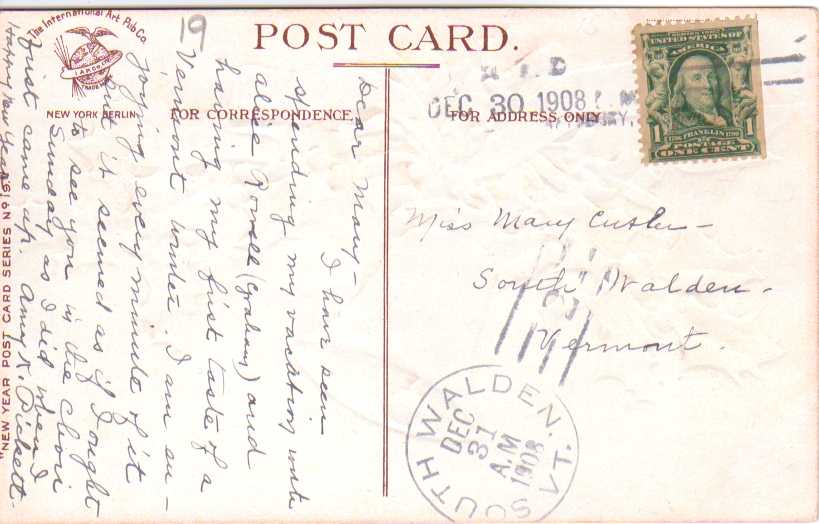 The International Art Pub Co.
I.A.P.Co.
TRADE MARK
NEW YORK BERLIN
19
POST CARD.
FOR CORRESPONDENCE,
FOR ADDRESS ONLY
"NEW YEAR POST CARD SERIES No
Dear Mary-
I have been
spending my vacation with
Alice Rowell (Graham) and
having my first taste of a
Vermont winter. I am en-
joying every minute of it
but it seemed as if I ought
to see you in the choir
Sunday as I did when I
first came up. Amey K. Pickett-
Happy New Year
DEC 30 1908
SERIES 1902
UNITED STATES OF
AMERICA
1 1
FRANKLIN
POSTAGE
ONE CENT
Miss Mary Cutler-
South Walden-
Vermont.
SOUTH WALDEN, VT.
DEC
31
A.M
1908